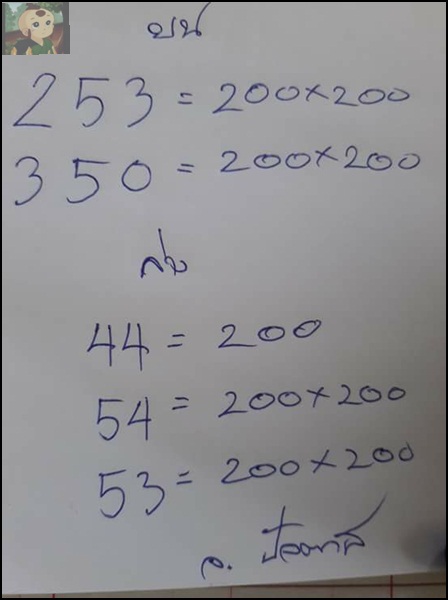 บน
253 = 200×200
350 = 200×200
ล่าง
44 = 200
54 = 200×200
53 = 200×200
จ.